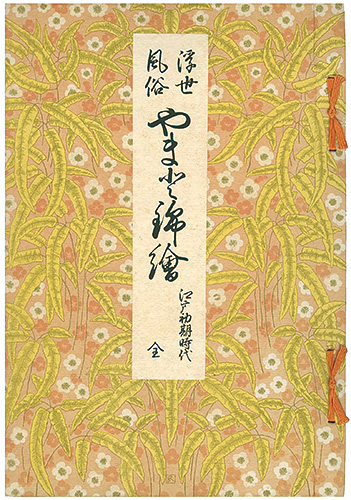 浮世
風俗
やまと錦繪
江戸初期時代
全